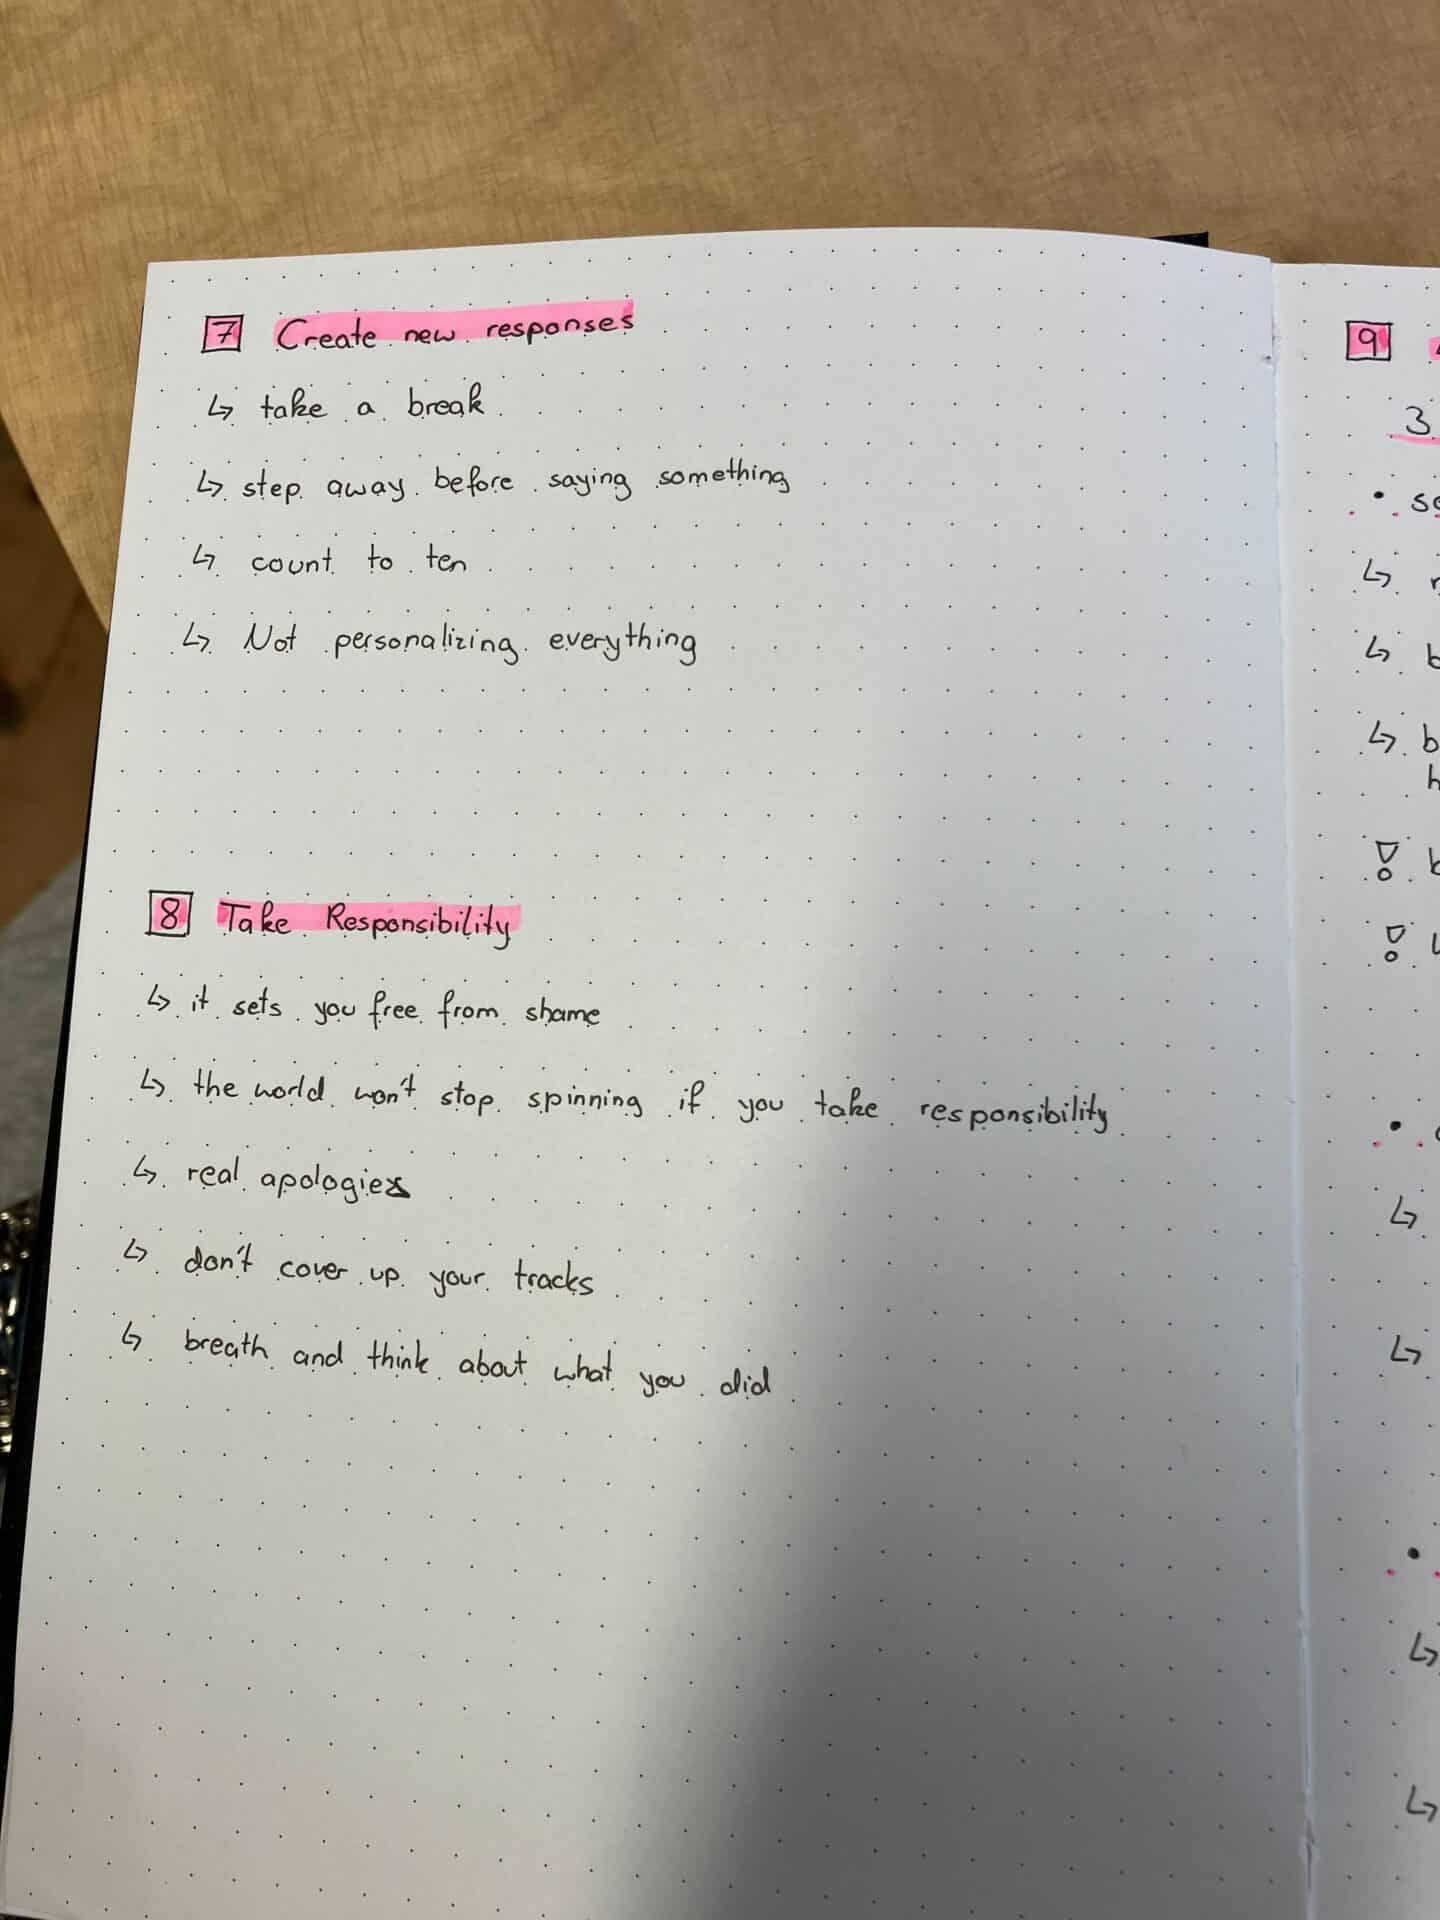 7 Create new responses
↳ take a break
↳ step away before saying something
↳ count to ten
↳ Not personalizing everything
8 Take Responsibility
↳ it sets you free from shame
↳ the world won't stop spinning if you take responsibility
↳ real apologies
↳ don't cover up your tracks
↳ breath and think about what you did
9
3